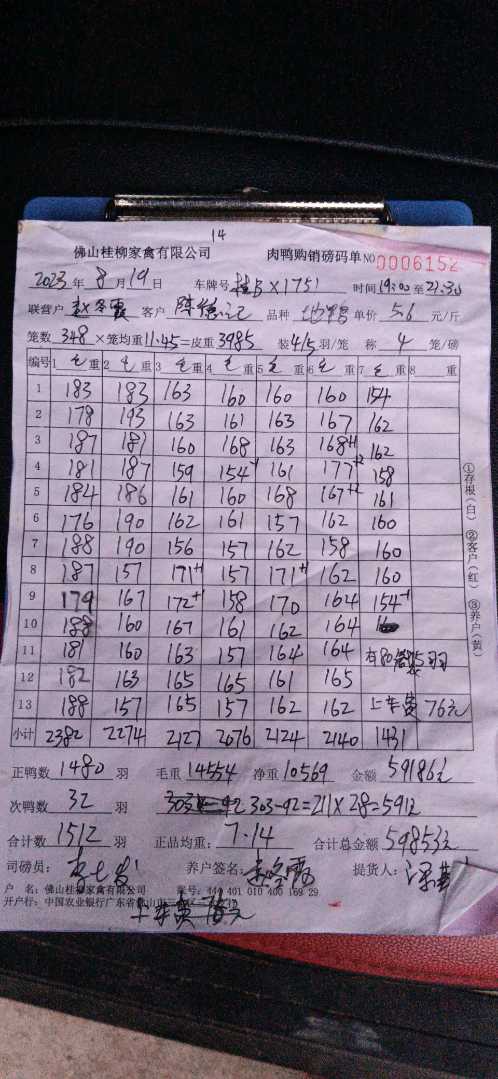 14
佛山桂柳家禽有限公司 肉鸭购销磅码单 NO 0006152
2023 年 8 月 19 日 车牌号 桂B X1751 时间 19:00 至 21:30
联营户 客户 陈德记 品种 地鸭 单价 5.6 元/斤
笼数 348 ×笼均重 11.45 =皮重 3985 装 4/5 羽/笼 称 4 笼/磅
编号 1 毛 重 2 毛 重 3 毛 重 4 毛 重 5 毛 重 6 毛 重 7 毛 重 8 重
1 183 183 163 160 160 160 154
2 178 193 163 161 163 167 162
3 187 187 160 168 163 168+1 162
4 181 187 159 154-1 161 177+2 158
5 184 186 161 160 168 167+2 161
6 176 190 162 161 157 162 160
7 188 190 156 157 162 158 160
8 187 157 171+1 157 171+1 162 160
9 179 167 172+1 158 170 164 154-1
10 188 160 167 161 162 164
11 181 160 163 157 164 164 有80笼装5羽
12 182 163 165 165 161 165
13 188 157 165 157 162 162 上车费 76元
小计 2382 2274 2127 2076 2124 2140 1431
①存根(白) ②客户(红) ③养户(黄)
正鸭数 1480 羽 毛重 14554 净重 10569 金额 59186元
次鸭数 32 羽 303-92=211×28=591元
合计数 1512 羽 正品均重: 7.14 合计总金额 59853元
司磅员: 养户签名: 提货人:
户 名: 佛山桂柳家禽有限公司 账号: 440 401 010 400 169 29
开户行: 中国农业银行广东省佛山市三
上车费 76元